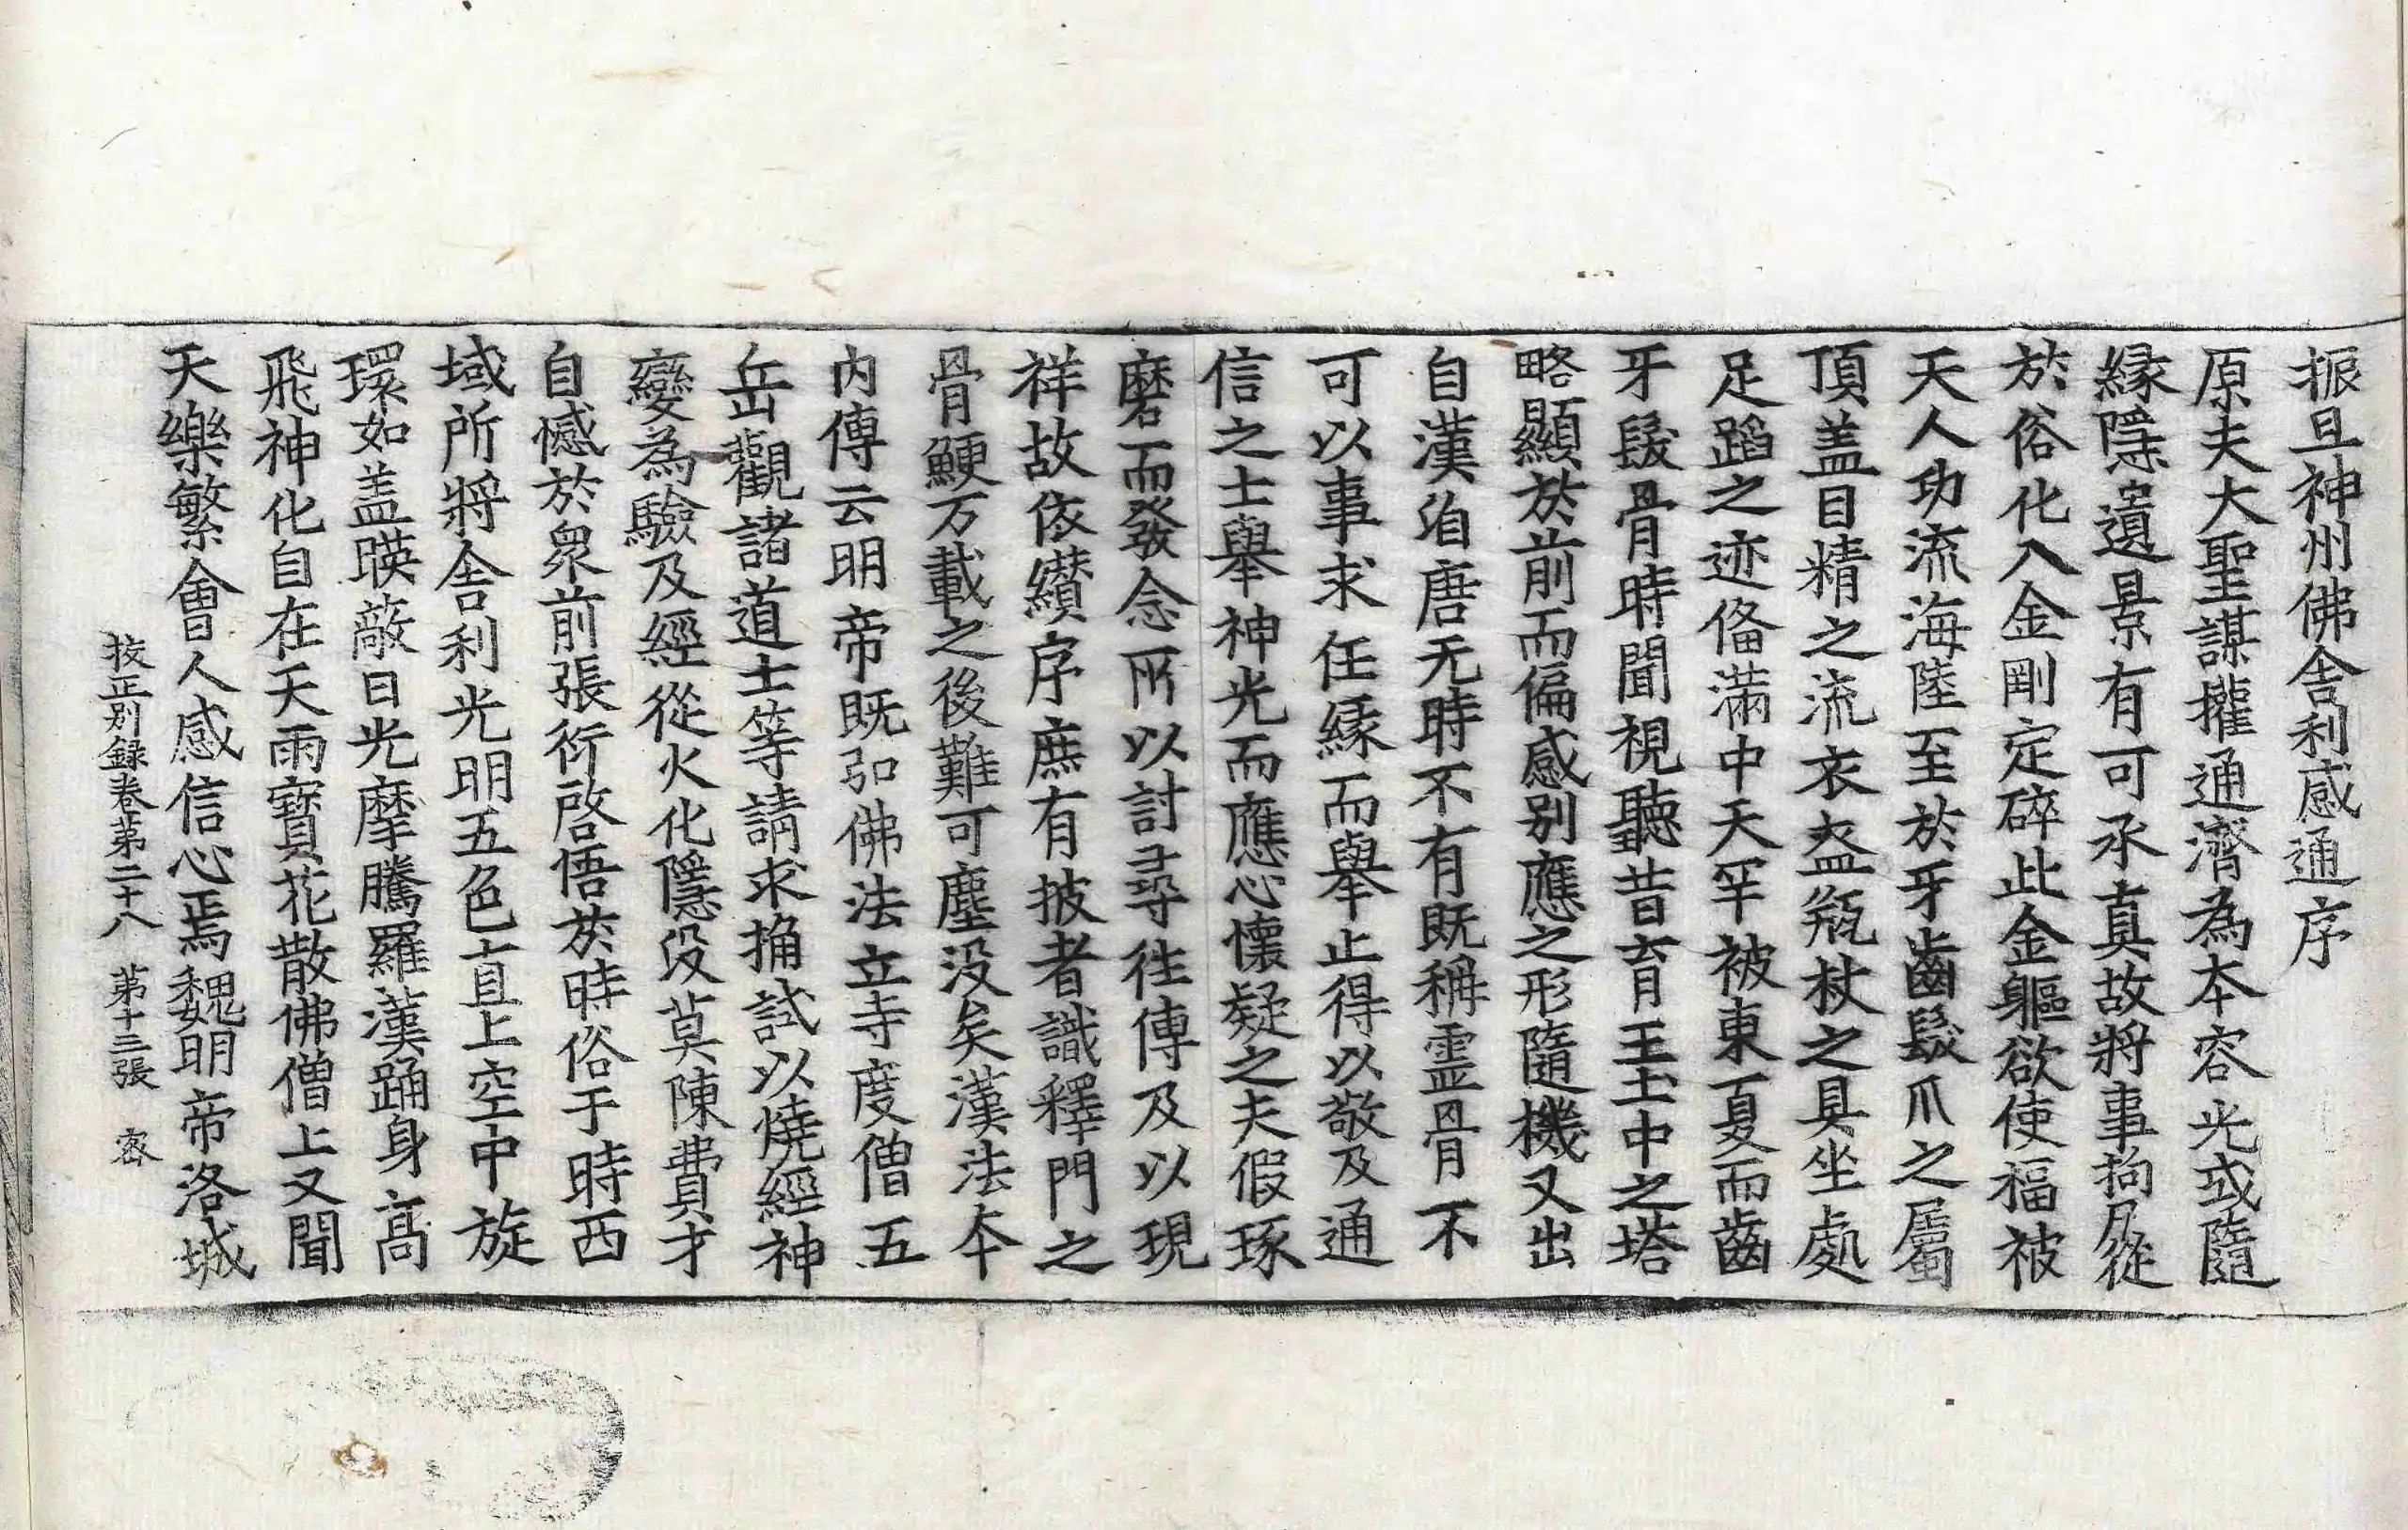 振旦神州佛舍利感通序
原夫大聖謀權通濟為本容光或隨
緣隱遺景有可承真故將事拘尸從
於俗化入金剛定碎此金軀欲使福被
天人功流海陸至於牙齒髮爪之屬
頂盖目精之流衣盔瓶杖之具坐處
足蹈之迹俻滿中天罕被東夏而齒
牙髮骨時聞視聽昔育王土中之塔
略顯於前而偏感别應之形隨機又出
自漢洎唐无時不有既稱霊骨不
可以事求任緣而舉止得以敬及通
信之士舉神光而應心懷疑之夫假琢
磨而發念所以討尋徃傳及以現
祥故依纘序庶有披者識釋門之
骨鯁万載之後難可塵没矣漢法本
内傳云明帝既弘佛法立寺度僧五
岳觀諸道士等請求捔試以燒經神
變為驗及經從火化隱没莫陳費才
自憾於衆前張衍啓悟於時俗于時西
域所將舍利光明五色直上空中旋
環如盖暎蔽日光摩騰羅漢踊身高
飛神化自在天雨寶花散佛僧上又聞
天樂繁會人感信心焉魏明帝洛城
挍正别録卷第二十八 第十三張 密